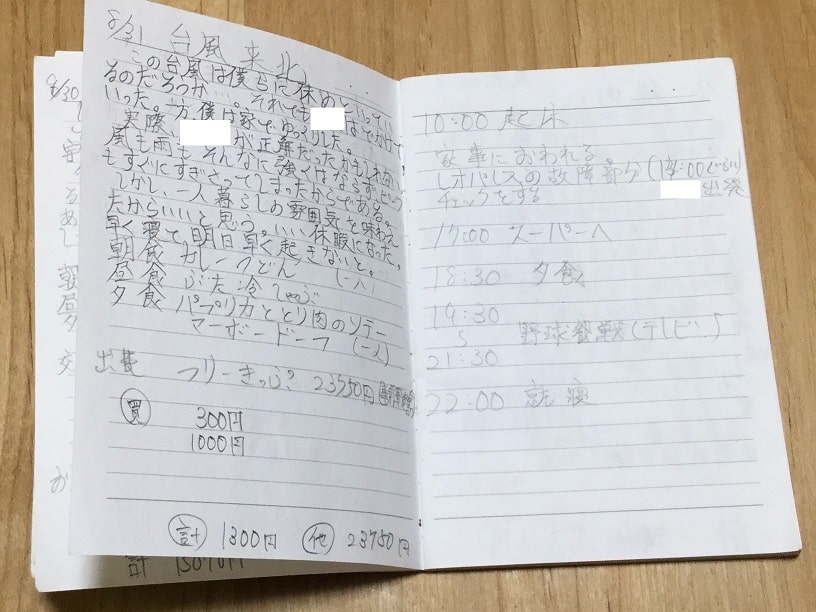 8/31 台風来北
この台風は僕らに休めといってい
るのだろうか…。それでも なでかけて
いった。一方、僕は家でゆっくりした。
実際 が正解だったかもしれない
風も雨もそんなに強くはならず、ピーク
もすぐにすぎさってしまったからである。
しかし、一人暮らしの雰囲気を味わえ
たからいいと思う。いい休暇になった。
早く寝て、明日早く起きないと。
朝食 カレーうどん
昼食 ぶた冷しゃぶ (一人)
夕食 パプリカととり肉のソテー
マーボードーフ (一人)
出費 フリーきっぷ 23750円
買 300円
1000円
計 1300円 他 23750円
8/30
計
10:00 起床
家事におわれる。
レオパレスの故障部分
チェックをする 出発
17:00 スーパーへ
18:30 夕食
19:30
21:30
野球観戦(テレビ)
22:00 就寝